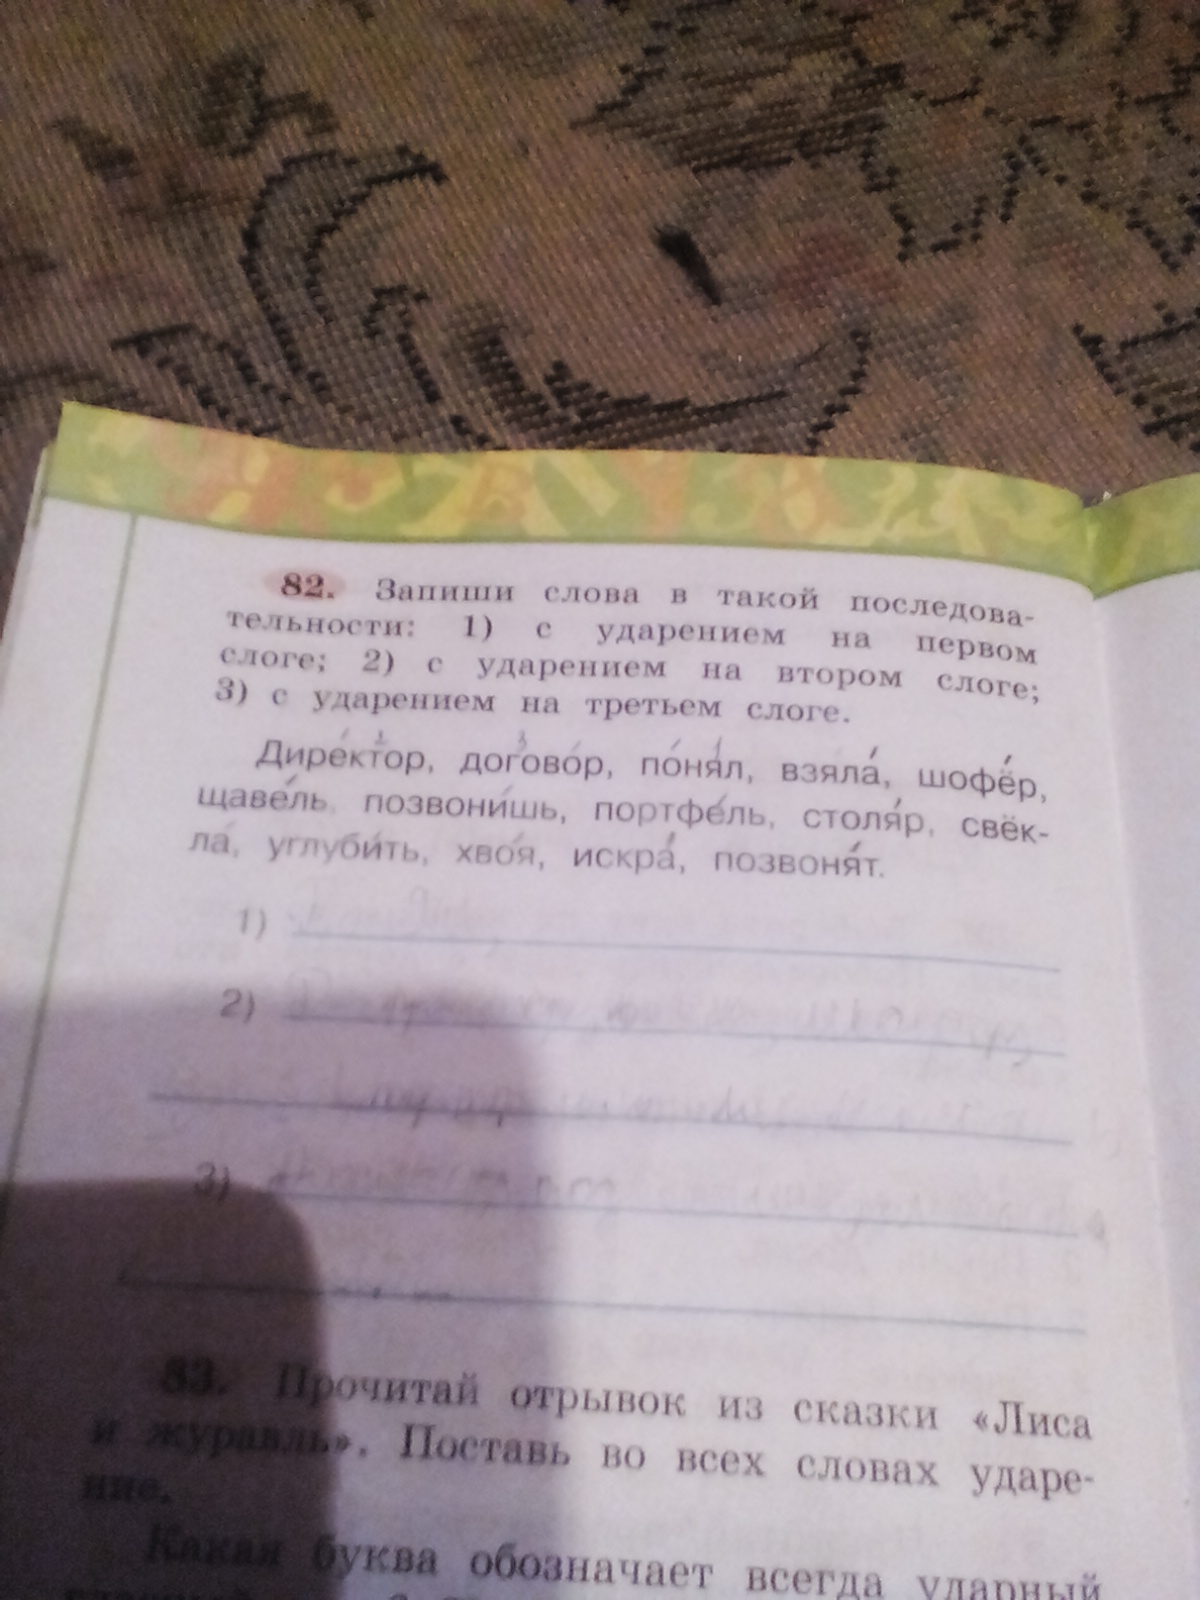 82. Запиши слова в такой последова-
тельности: 1) с ударением на первом
слоге; 2) с ударением на втором слоге;
3) с ударением на третьем слоге.
Директор, договор, понял, взяла, шофёр,
щавель, позвонишь, портфель, столяр, свёк-
ла, углубить, хвоя, искра, позвонят.
1)
2)
3)
83. Прочитай отрывок из сказки «Лиса
и журавль». Поставь во всех словах ударе-
ние.
Какая буква обозначает всегда ударный